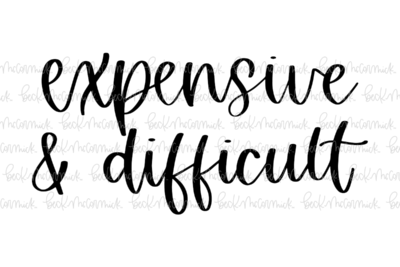 expensive
& difficult